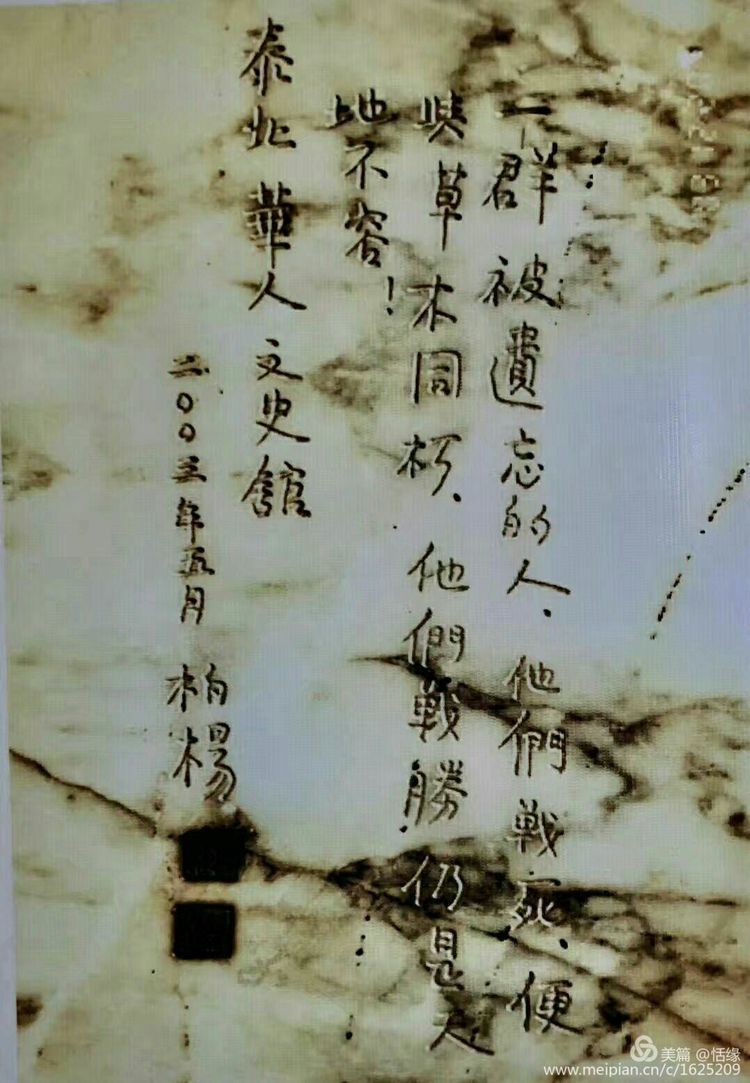 一群被遺忘的人、他們戰死、便
與草木同朽、他們戰勝仍是天
地不容！
泰北華人文史館
二〇〇三年五月 柏楊
美篇 @恬缘
www.meipian.cn/c/1625209